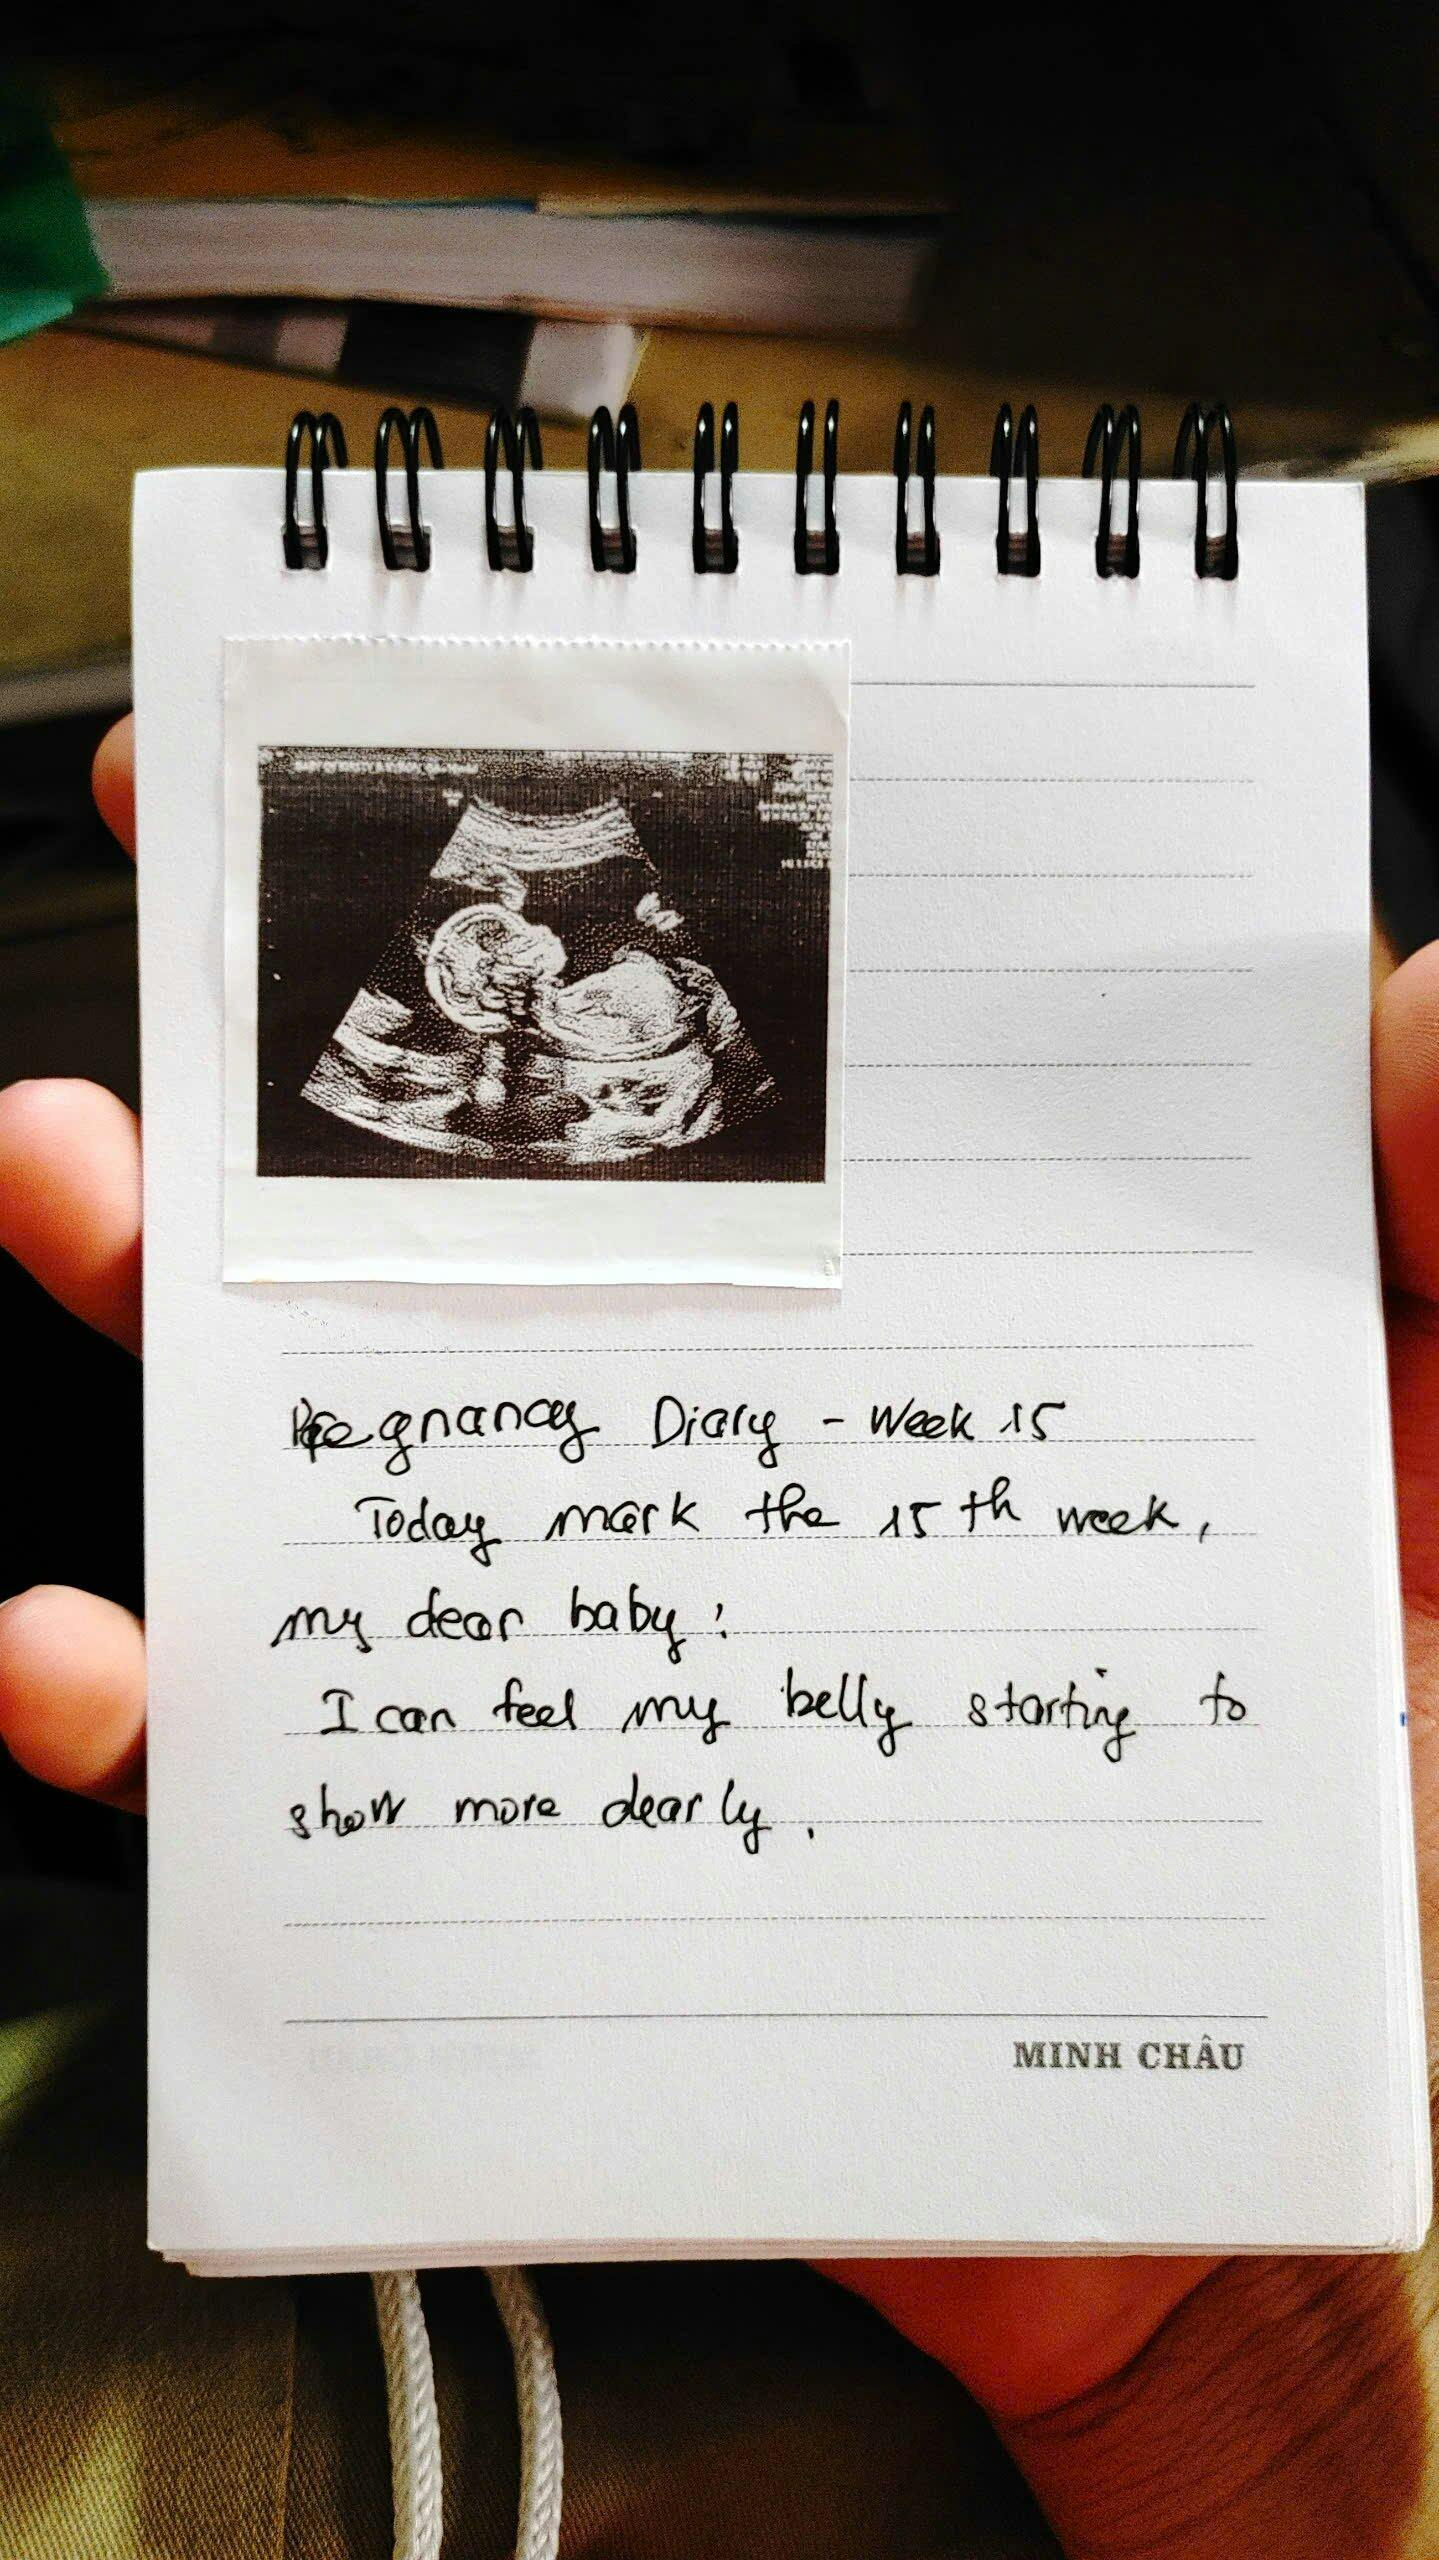 Pregnancy Diary - Week 15
Today mark the 15th week,
my dear baby!
I can feel my belly starting to
show more clearly.
MINH CHÂU